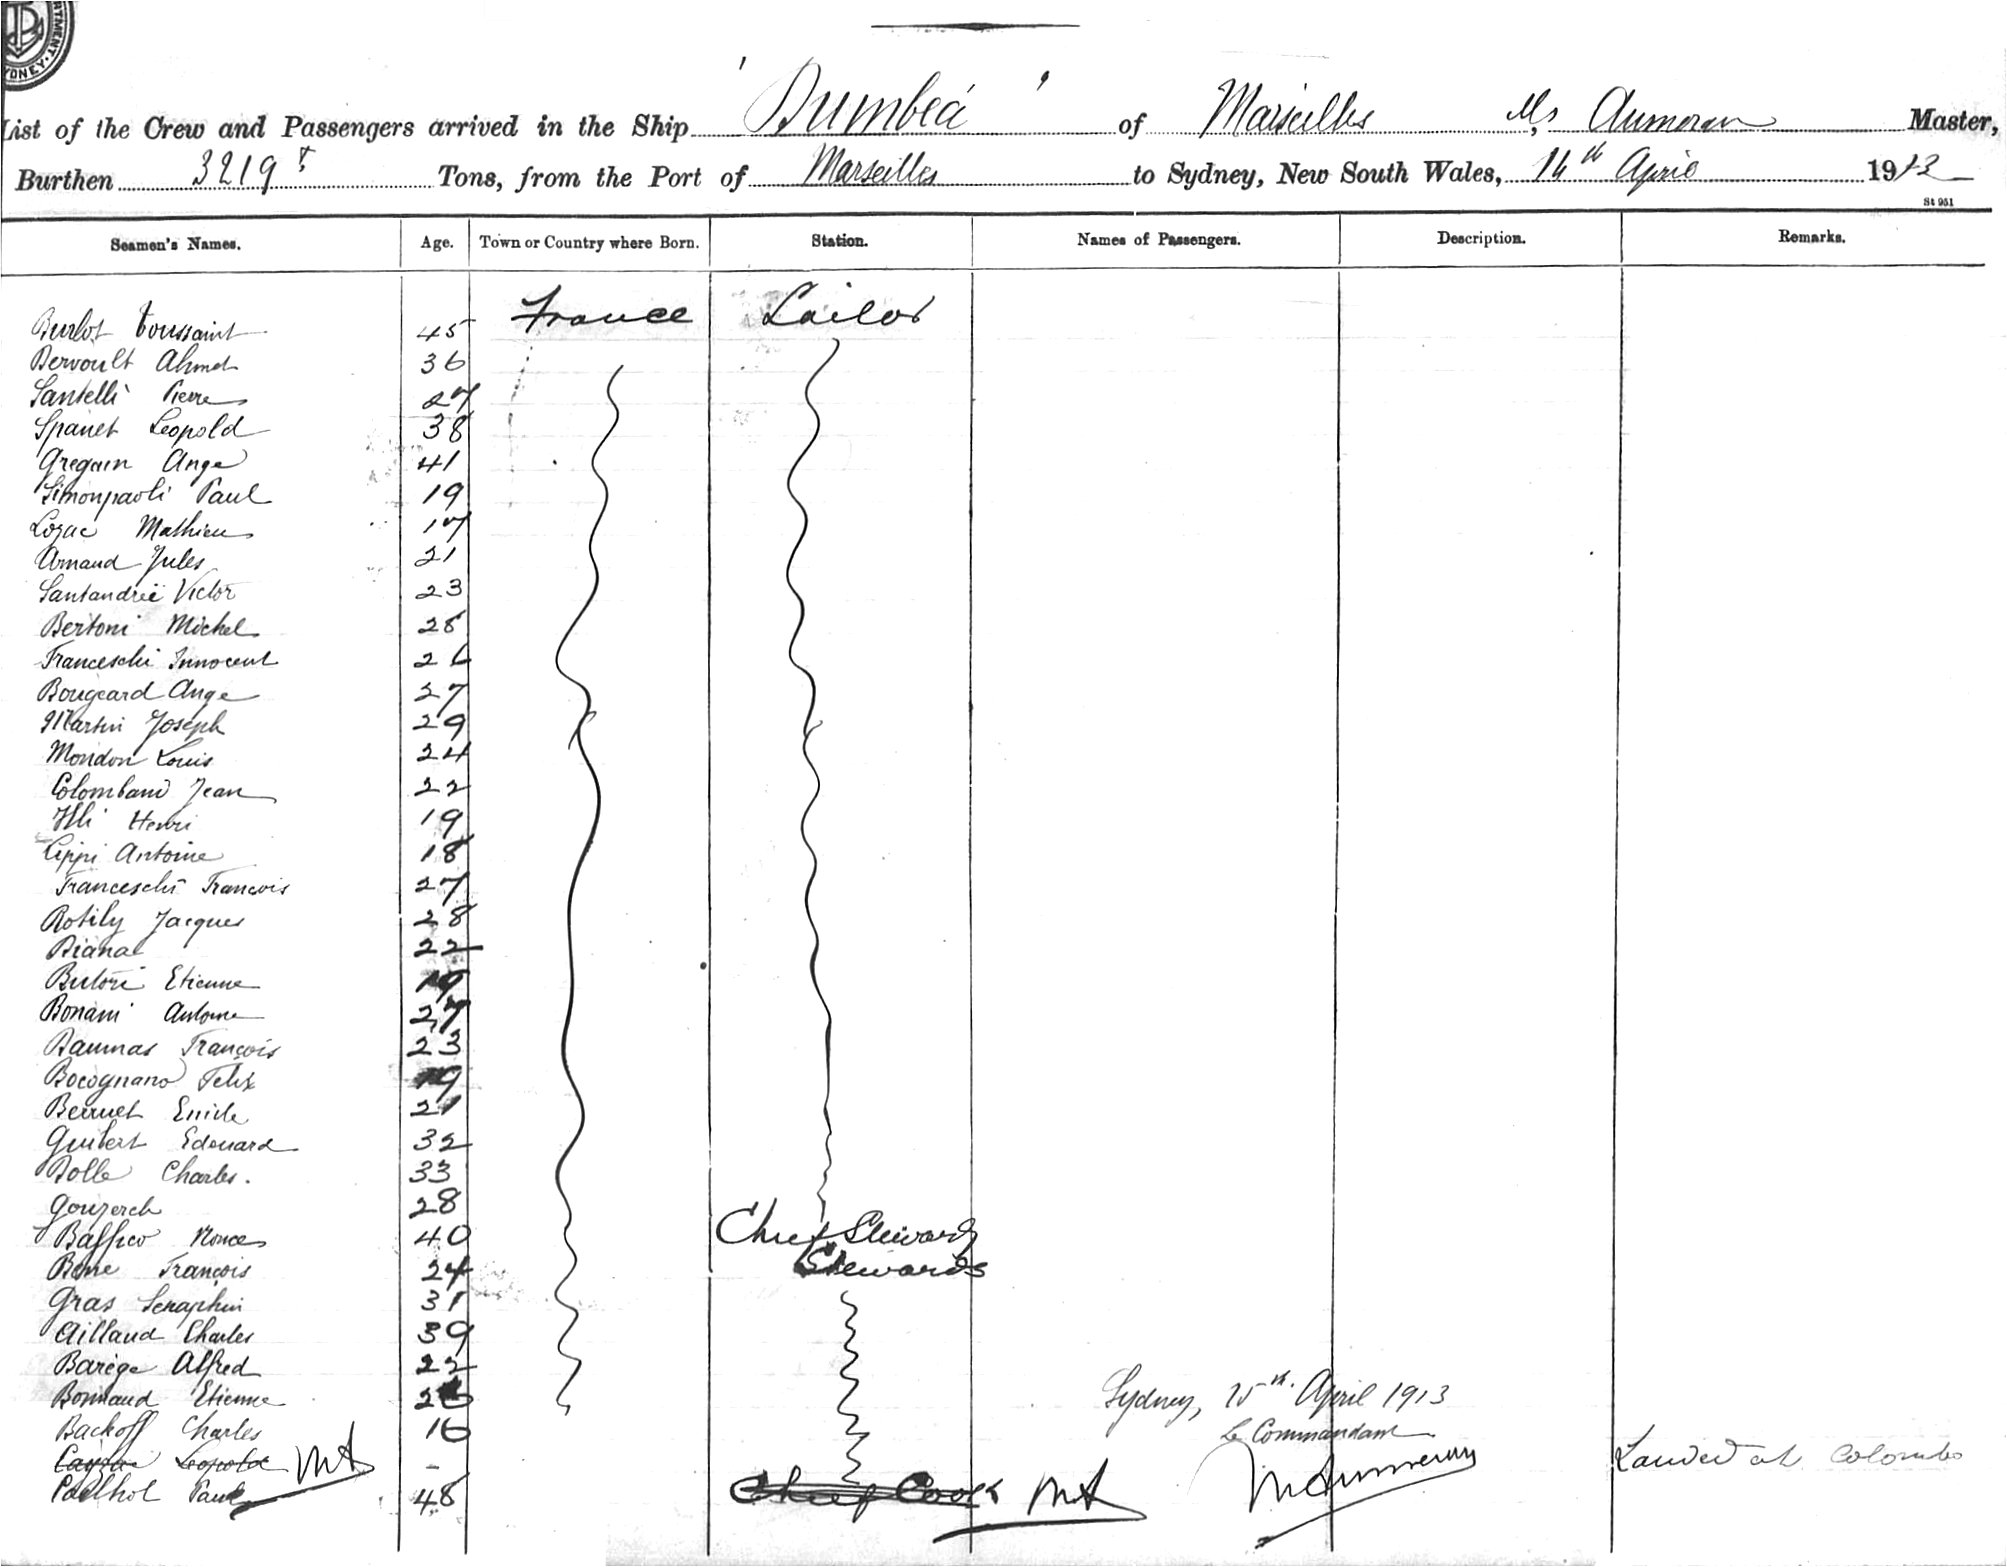 RTMENT.
YDNEY.
List of the Crew and Passengers arrived in the Ship 'Dumbéa' of Marseilles, Ms Aumeran Master,
Burthen 3219 T Tons, from the Port of Marseilles to Sydney, New South Wales, 14th April 1913
St 951
Seamen's Names. Age. Town or Country where Born. Station. Names of Passengers. Description. Remarks.
Burlot Toussaint 45 France Sailor
Dervoult Ahmed 36
Santelli Pierre 27
Spanet Leopold 38
Gregam Ange 41
Simonpaoli Paul 19
Lozac Mathieu 17
Arnaud Jules 21
Santandrei Victor 23
Bertoni Michel 28
Franceschi Innocent 26
Bougeard Ange 27
Martin Joseph 29
Mondon Louis 24
Colombani Jean 22
Illi Henri 19
Lippi Antoine 18
Franceschi Francois 27
Rotily Jacques 28
Biana 22
Butori Etienne 19
Bonani Antoine 27
Baumas François 23
Bocognano Felix 19
Berruet Emile 21
Guibert Edouard 32
Bolle Charles. 33
Gouzerch 28
Baffico Nonce 40 Chief Steward
Bone François 24 Stewards
Gras Seraphin 31
Aillaud Charles 39
Barège Alfred 22
Bonnaud Etienne
Backoff Charles 16
Leopold MA -
Pailhol Paul 48 Chief Cook MA
Sydney, 15th. April 1913
Le Commandant
MAumeran
Landed at Colombo